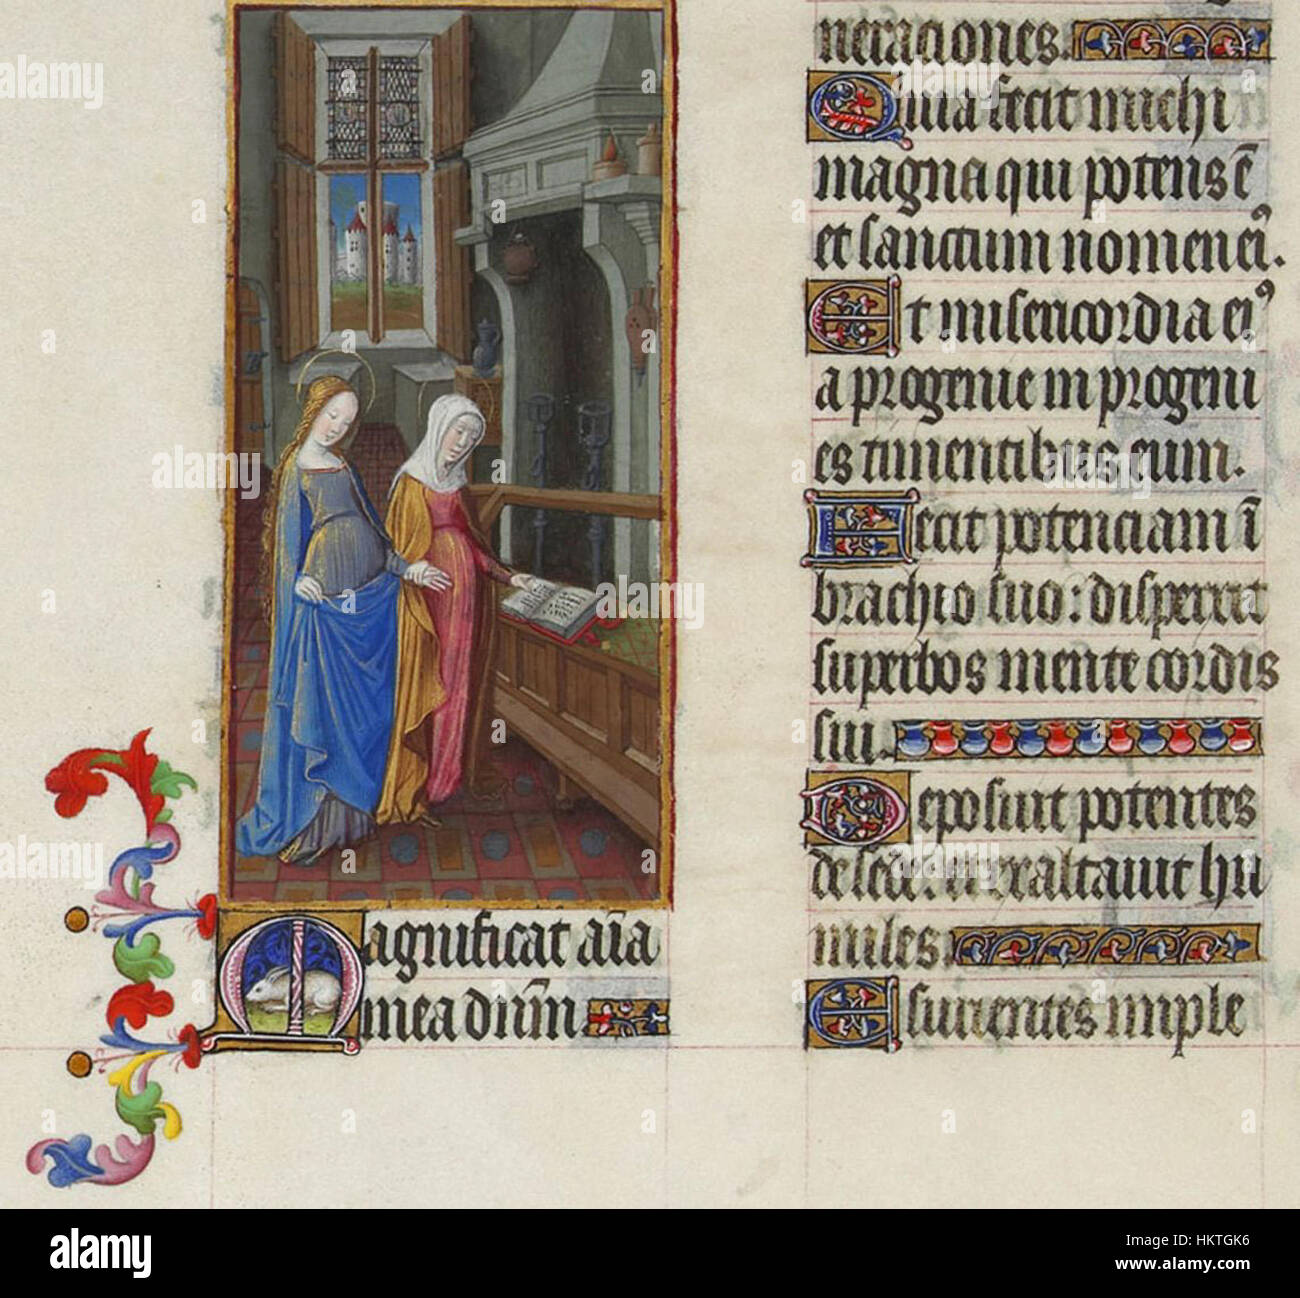 Magnificat aĩa
mea dnm̃
neraciones.
Quia fecit michi
magna qui potens ẽ
et sanctum nomen eiꝰ.
Et misericordia eiꝰ
a progenie in progeni
es timentibus eum.
Fecit potenciam ĩ
brachio suo: disperxit
superbos mente cordis
sui.
Deposuit potentes
de sede: et exaltavit hu
miles.
Esurientes imple
alamy
Image ID: HKTGK6
www.alamy.com